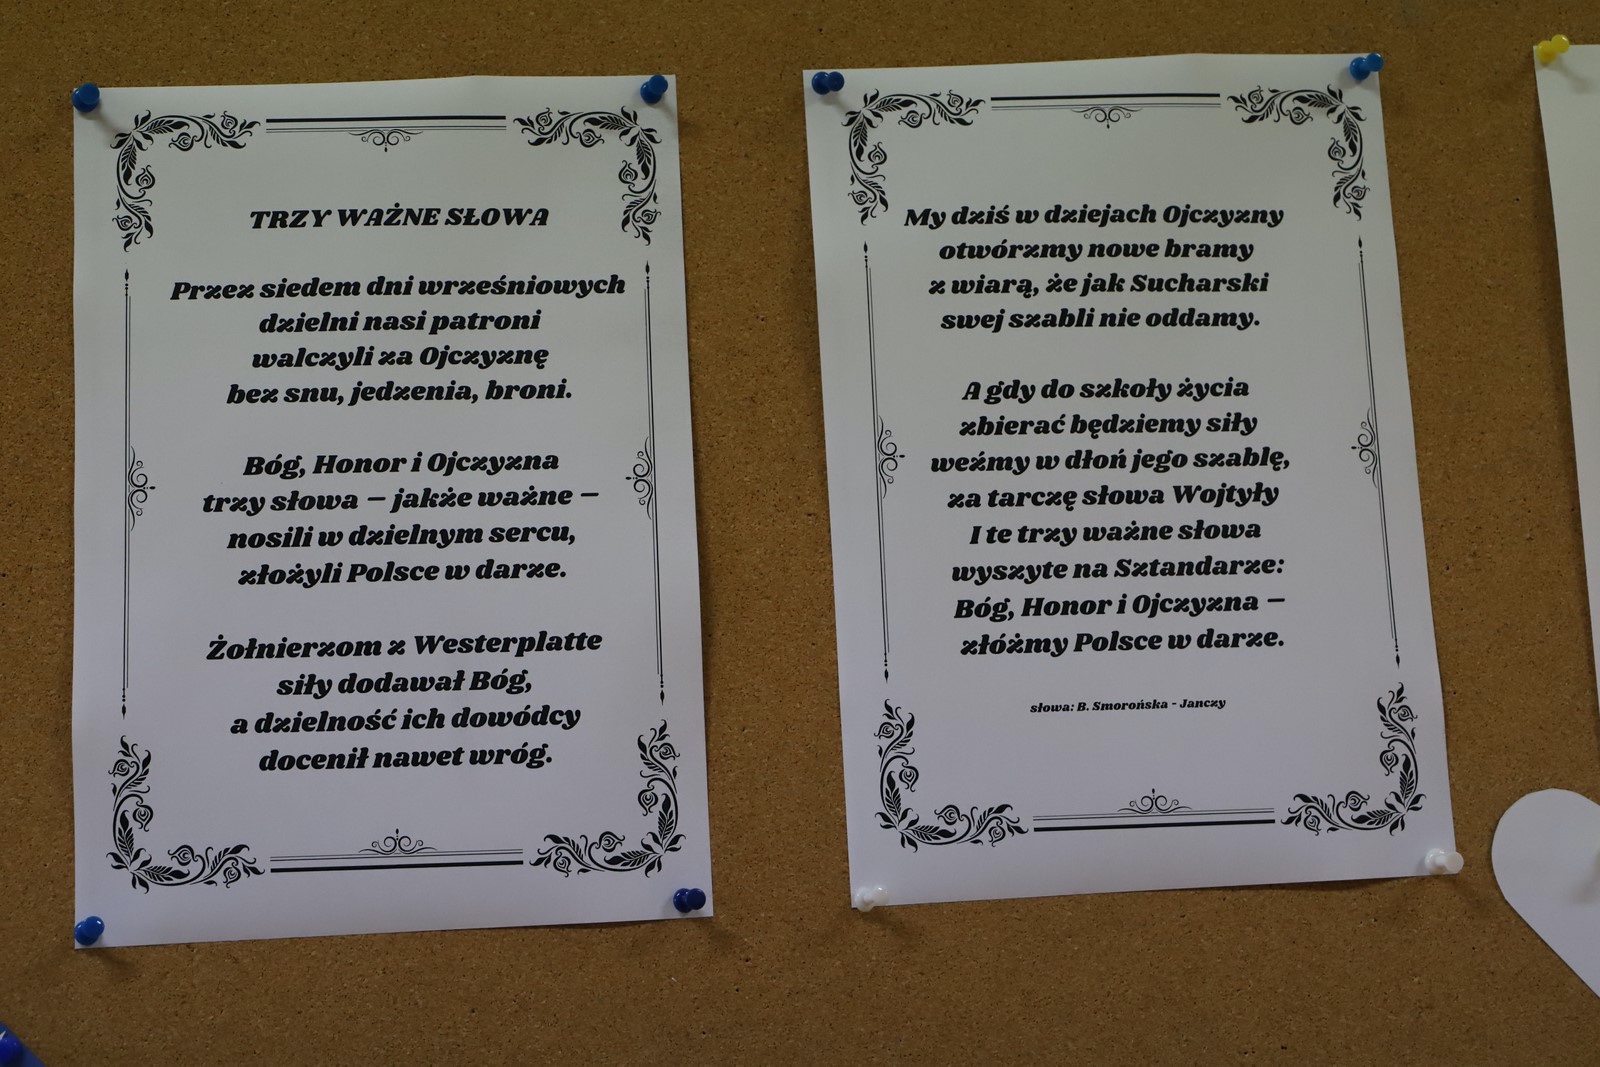 TRZY WAŻNE SŁOWA
Przez siedem dni wrześniowych
dzielni nasi patroni
walczyli za Ojczyznę
bez snu, jedzenia, broni.
Bóg, Honor i Ojczyzna
trzy słowa – jakże ważne –
nosili w dzielnym sercu,
złożyli Polsce w darze.
Żołnierzom z Westerplatte
siły dodawał Bóg,
a dzielność ich dowódcy
docenił nawet wróg.
My dziś w dziejach Ojczyzny
otwórzmy nowe bramy
z wiarą, że jak Sucharski
swej szabli nie oddamy.
A gdy do szkoły życia
zbierać będziemy siły
weźmy w dłoń jego szablę,
za tarczę słowa Wojtyły
I te trzy ważne słowa
wyszyte na Sztandarze:
Bóg, Honor i Ojczyzna –
złóżmy Polsce w darze.
słowa: B. Smorońska - Janczy